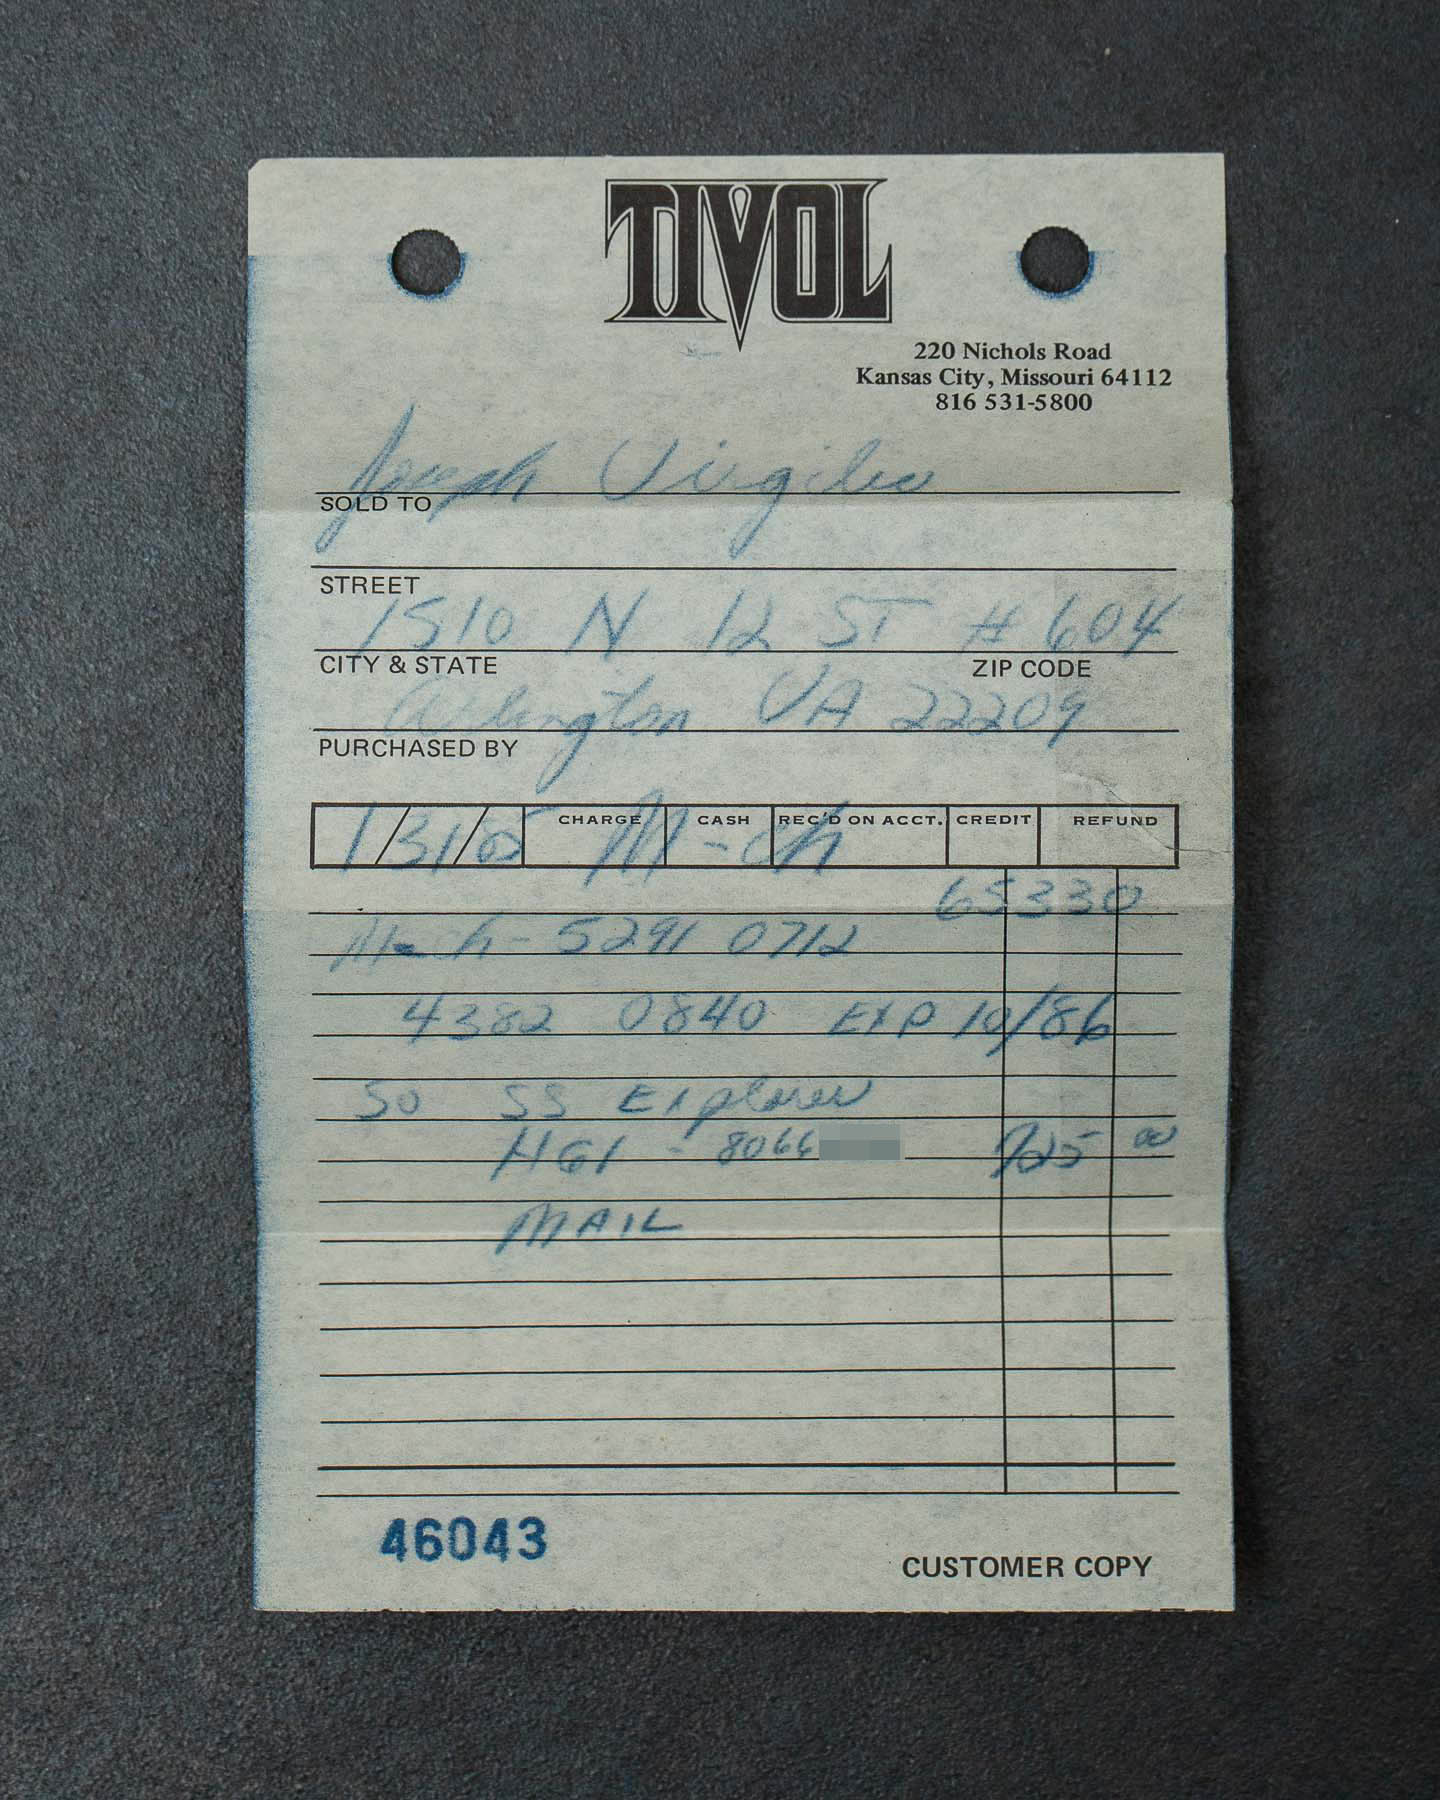 TIVOL
220 Nichols Road
Kansas City, Missouri 64112
816 531-5800
Joseph Virgilio
SOLD TO
STREET
1510 N 12 ST # 604
CITY & STATE ZIP CODE
Arlington VA 22209
PURCHASED BY
1/31/85 CHARGE M-ch CASH REC'D ON ACCT. CREDIT REFUND
65330
M-ch - 5291 0712
4382 0840 EXP 10/86
SS Explorer
HG1 - 8066 725 00
MAIL
46043
CUSTOMER COPY